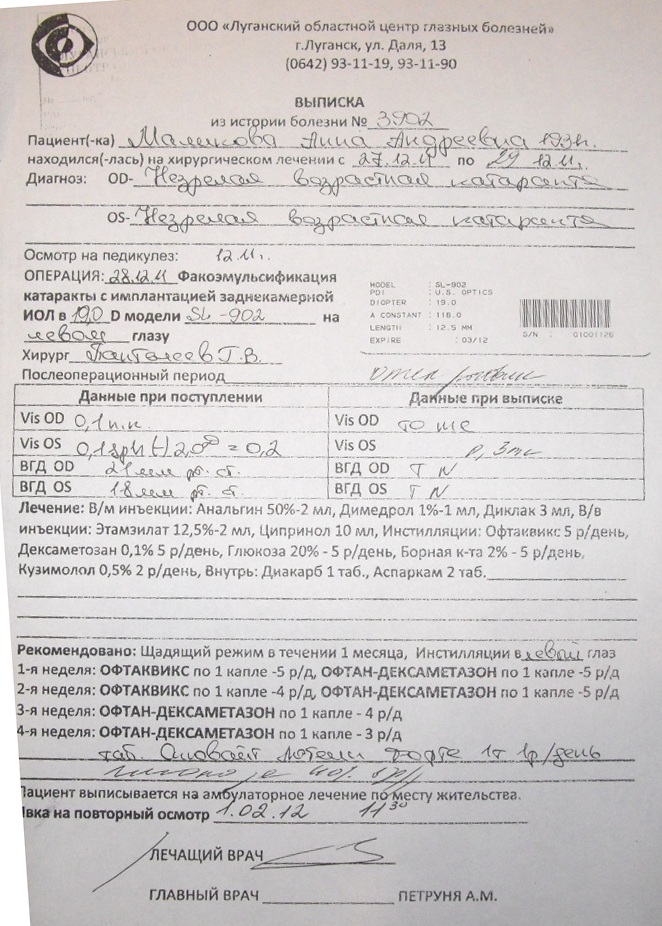 ООО «Луганский областной центр глазных болезней»
г.Луганск, ул. Даля, 13
(0642) 93-11-19, 93-11-90
ВЫПИСКА
из истории болезни № 3902
Пациент(-ка) Маликова Анна Андреевна 1931г.
находился(-лась) на хирургическом лечении с 27.12.11 по 29 12.11.
Диагноз: OD- Незрелая возрастная катаракта
OS- Незрелая возрастная катаракта
Осмотр на педикулез: 12.11г.
ОПЕРАЦИЯ: 28.12.11 Факоэмульсификация
катаракты с имплантацией заднекамерной
ИОЛ в 19,0 D модели SL-902 на
левом глазу
MODEL : SL-902
PDI : U.S. OPTICS
DIOPTER : 19.0
A CONSTANT : 118.0
LENGTH : 12.5 MM
EXPIRE : 03/12
S/N : 01001126
Хирург Панталеев Г.В.
Послеоперационный период
Данные при поступлении Данные при выписке
Vis OD 0,1 н.к. Vis OD то же
Vis OS 0,1 sph (-) 2,0D = 0,2 Vis OS 0,3
ВГД OD 21 мм рт. ст. ВГД OD T N
ВГД OS 18 мм рт. ст. ВГД OS T N
Лечение: В/м инъекции: Анальгин 50%-2 мл, Димедрол 1%-1 мл, Диклак 3 мл, В/в
инъекции: Этамзилат 12,5%-2 мл, Ципринол 10 мл, Инстилляции: Офтаквикс 5 р/день,
Дексаметозан 0,1% 5 р/день, Глюкоза 20% - 5 р/день, Борная к-та 2% - 5 р/день,
Кузимолол 0,5% 2 р/день, Внутрь: Диакарб 1 таб., Аспаркам 2 таб.
Рекомендовано: Щадящий режим в течении 1 месяца, Инстилляции в левый глаз
1-я неделя: ОФТАКВИКС по 1 капле -5 р/д, ОФТАН-ДЕКСАМЕТАЗОН по 1 капле -5 р/д
2-я неделя: ОФТАКВИКС по 1 капле -4 р/д, ОФТАН-ДЕКСАМЕТАЗОН по 1 капле -5 р/д
3-я неделя: ОФТАН-ДЕКСАМЕТАЗОН по 1 капле - 4 р/д
4-я неделя: ОФТАН-ДЕКСАМЕТАЗОН по 1 капле - 3 р/д
таб. Окювайт Лютеин форте 1т 1р/день
40%
Пациент выписывается на амбулаторное лечение по месту жительства.
Явка на повторный осмотр 1.02.12 11 30
ЛЕЧАЩИЙ ВРАЧ
ГЛАВНЫЙ ВРАЧ ПЕТРУНЯ А.М.